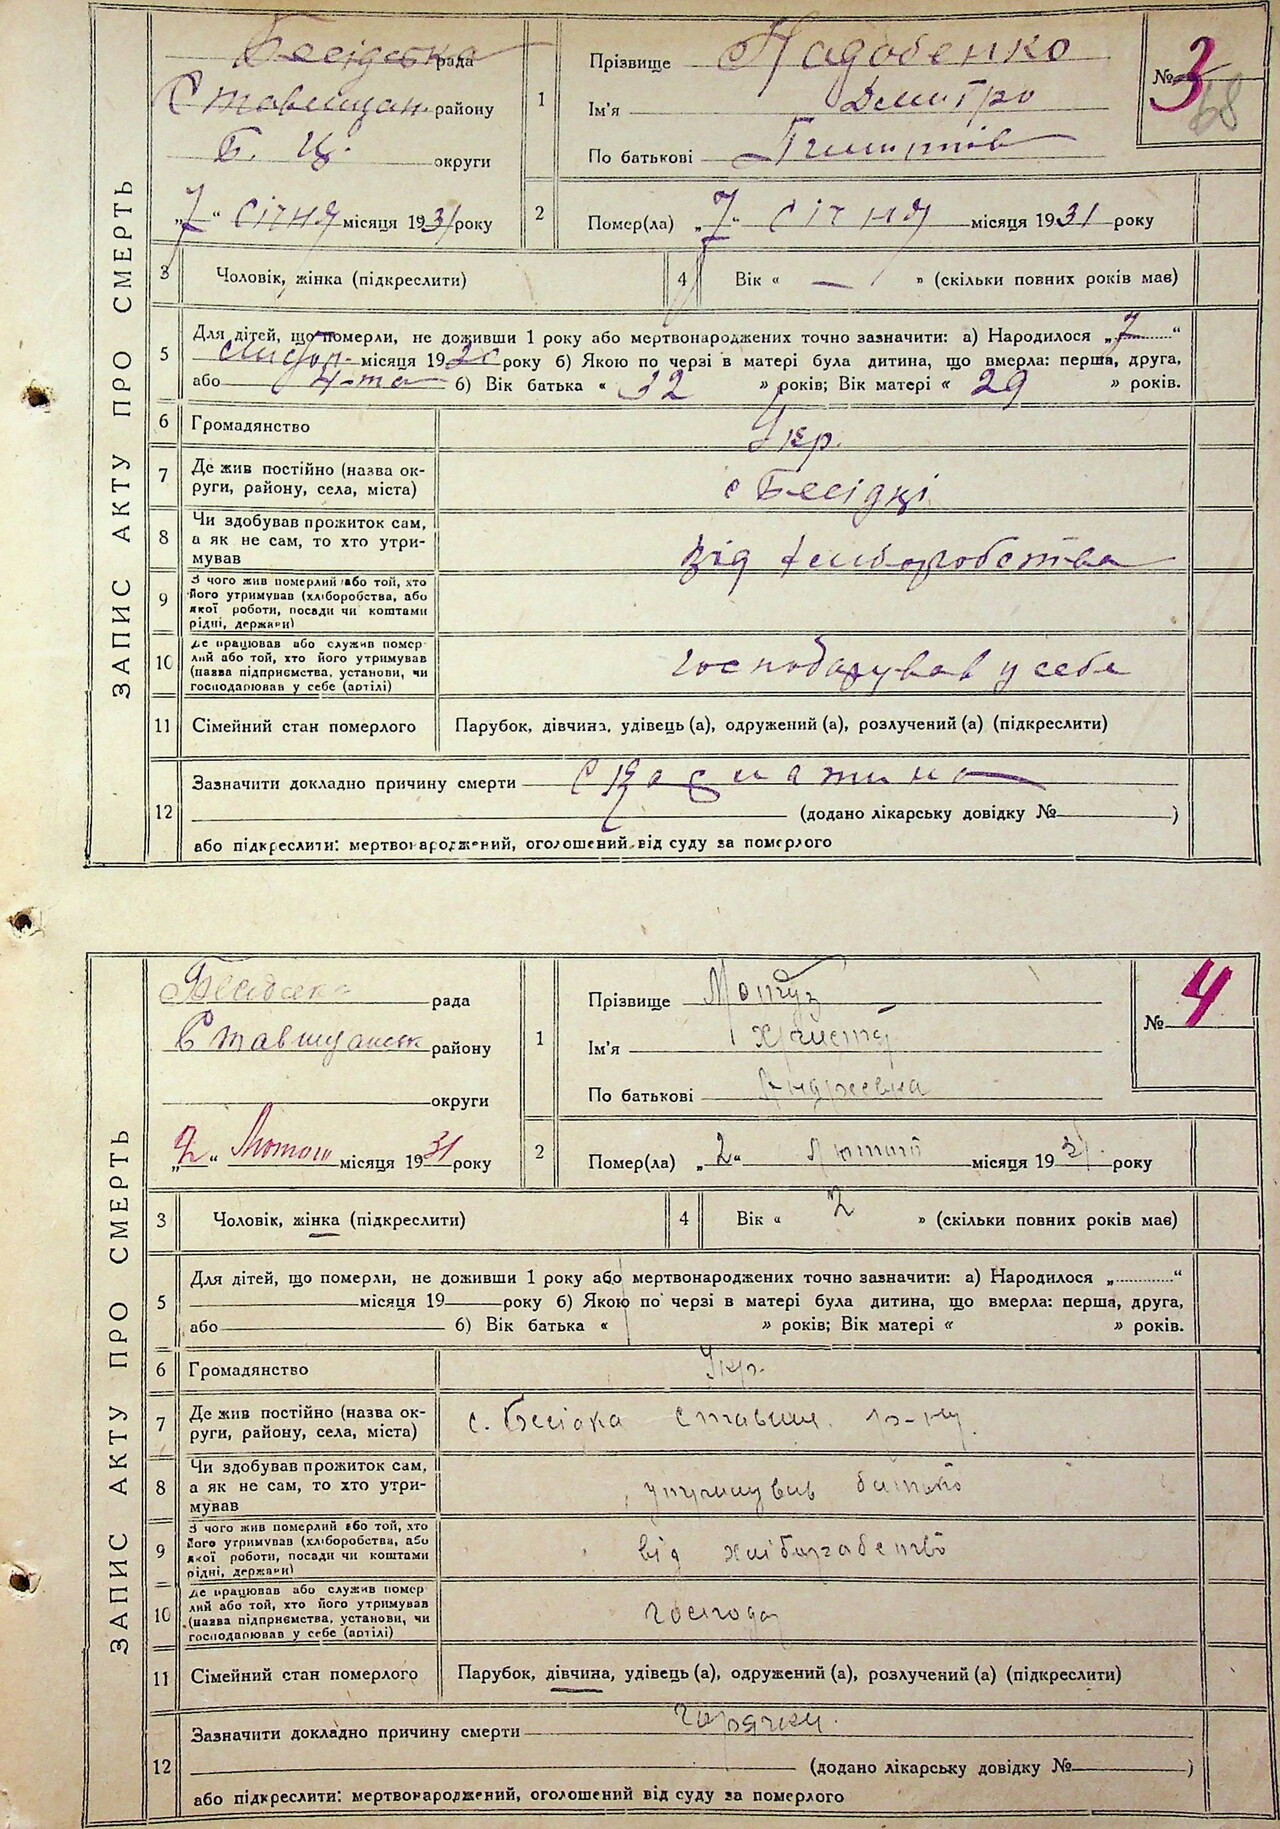 ЗАПИС АКТУ ПРО СМЕРТЬ
Бесідська рада
Ставищан. району
Б. Ц. округи
„7“ січня місяця 1931 року
1
Прізвище Надобенко
Ім'я Дмитро
По батькові
№ 3
68
2
Помер(ла) „7“ січня місяця 1931 року
3 Чоловік, жінка (підкреслити)
4 Вік « — » (скільки повних років має)
5 Для дітей, що померли, не доживши 1 року або мертвонароджених точно зазначити: а) Народилося „7“
місяця 19 року б) Якою по черзі в матері була дитина, що вмерла: перша, друга,
або 4-та б) Вік батька « 32 » років; Вік матері « 29 » років.
6 Громадянство Укр.
7 Де жив постійно (назва округи, району, села, міста) с Бесідці
8 Чи здобував прожиток сам, а як не сам, то хто утримував від хліборобства
9 З чого жив померлий або той, хто його утримував (хліборобства, або якої роботи, посади чи коштами рідні, держави)
10 Де працював або служив померлий або той, хто його утримував (назва підприємства, установи, чи господарював у себе (артілі) господарував у себе
11 Сімейний стан померлого Парубок, дівчина, удівець (а), одружений (а), розлучений (а) (підкреслити)
12 Зазначити докладно причину смерти
(додано лікарську довідку № )
або підкреслити: мертвонароджений, оголошений від суду за померлого
ЗАПИС АКТУ ПРО СМЕРТЬ
Бесідська рада
Ставищанськ району
округи
„2“ Лютого місяця 1931 року
1
Прізвище
Ім'я Христя
По батькові Андреевна
№ 4
2
Помер(ла) „2“ Лютого місяця 1931. року
3 Чоловік, жінка (підкреслити)
4 Вік « 2 » (скільки повних років має)
5 Для дітей, що померли, не доживши 1 року або мертвонароджених точно зазначити: а) Народилося „ “
місяця 19 року б) Якою по черзі в матері була дитина, що вмерла: перша, друга,
або б) Вік батька « » років; Вік матері « » років.
6 Громадянство Укр.
7 Де жив постійно (назва округи, району, села, міста) с. Бесідка Ставищ. р-ну
8 Чи здобував прожиток сам, а як не сам, то хто утримував утримував батько
9 З чого жив померлий або той, хто його утримував (хліборобства, або якої роботи, посади чи коштами рідні, держави) від хліборобство
10 Де працював або служив померлий або той, хто його утримував (назва підприємства, установи, чи господарював у себе (артілі) господар
11 Сімейний стан померлого Парубок, дівчина, удівець (а), одружений (а), розлучений (а) (підкреслити)
12 Зазначити докладно причину смерти горячки.
(додано лікарську довідку № )
або підкреслити: мертвонароджений, оголошений від суду за померлого